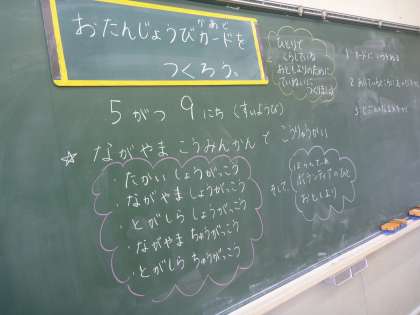 おたんじょうびカードを
かあど
つくろう。
ひとりで
くらしている
おとしよりのために
ていねいに
つくりましょう
5がつ 9にち (すいようび)
☆ ながやま こうみんかんで こうりゅうかい
・たかいしょうがっこう
・ながやましょうがっこう
・とがしらしょうがっこう
・ながやまちゅうがっこう
・とがしらちゅうがっこう
そして、
ボランティアの
おとしより